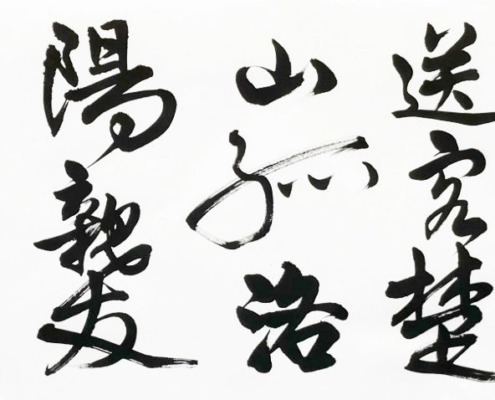 送客楚
山孤洛
陽親友